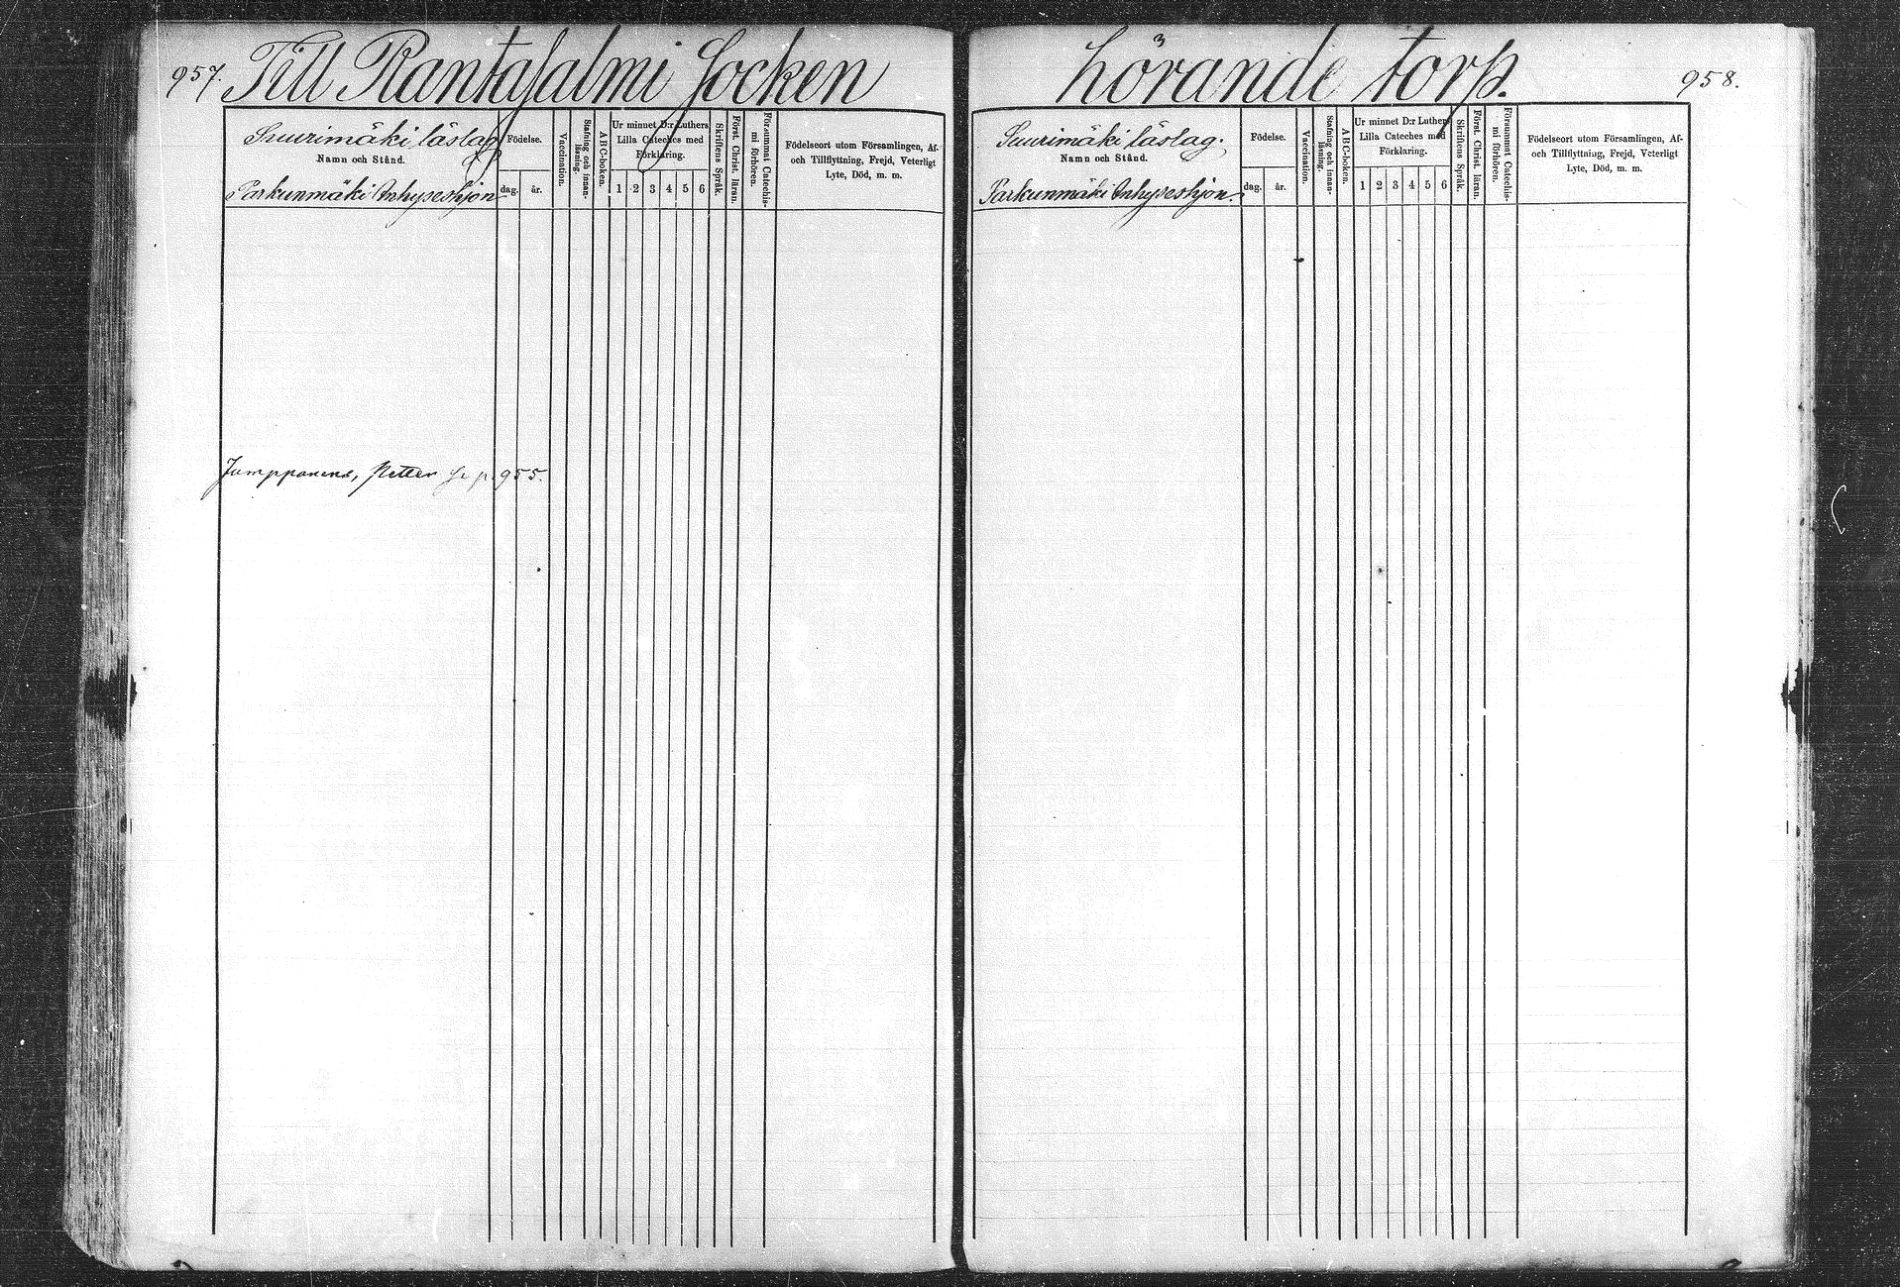 957. Till Rantasalmi Socken
Suurimäki läslag.
Namn och Stånd.
Parkunmäki Inhyseshjon
Födelse.
dag. år.
Vaccination.
Stafning och innan-
läsning.
ABC-boken.
Ur minnet D:r Luthers
Lilla Cateches med
Förklaring.
1 2 3 4 5 6
Skriftens Språk.
Först. Christ. läran.
Försummat Catechis-
mi förhören.
Födelseort utom Församlingen, Af-
och Tillflyttning, Frejd, Veterligt
Lyte, Död, m. m.
Jumppanens, Petter se p. 955.
hörande torp. 958.
Suurimäki läslag.
Namn och Stånd.
Parkunmäki Inhyseshjon.
Födelse.
dag. år.
Vaccination.
Stafning och innan-
läsning.
ABC-boken.
Ur minnet D:r Luthers
Lilla Cateches med
Förklaring.
1 2 3 4 5 6
Skriftens Språk.
Först. Christ. läran.
Försummat Catechis-
mi förhören.
Födelseort utom Församlingen, Af-
och Tillflyttning, Frejd, Veterligt
Lyte, Död, m. m.